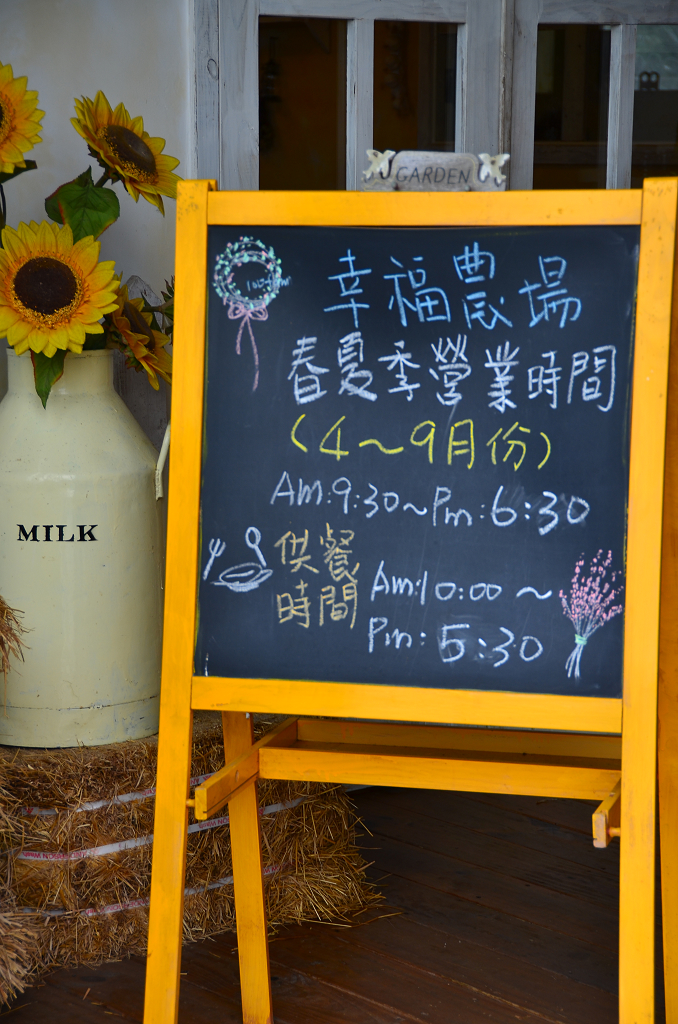 GARDEN
幸福農場
春夏季營業時間
(4～9月份)
Am:9:30~Pm:6:30
供餐
時間
Am:10:00~
Pm:5:30
MILK